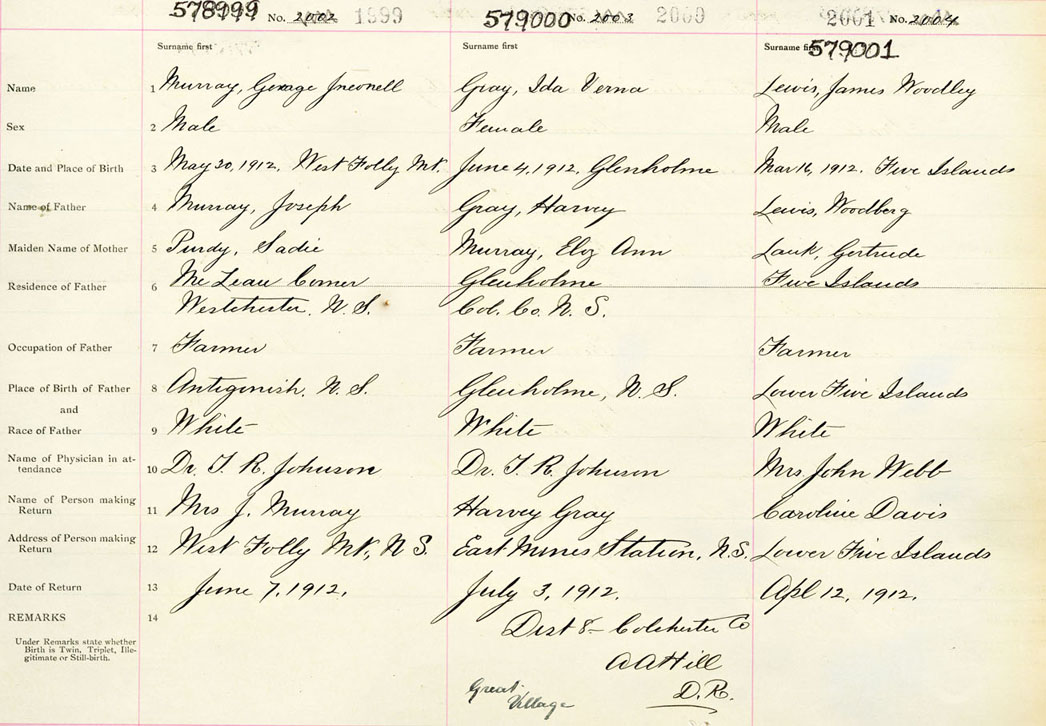 578999 No. 2002 1999 579000 No. 2003 2000 2001 No. 2004
Surname first Surname first Surname first 579001
Name 1 Murray, George Gray, Ida Verna Lewis, James Woodley
Sex 2 Male Female Male
Date and Place of Birth 3 May 20, 1912, West Folly Mt. June 4, 1912, Glenholme Mar 16, 1912. Five Islands
Name of Father 4 Murray, Joseph Gray, Harvey Lewis, Woodberg
Maiden Name of Mother 5 Purdy, Sadie Murray, Eliz Ann Gertrude
Residence of Father 6 McLean Corner Glenholme Five Islands
Westchester, N.S. Col. Co. N.S.
Occupation of Father 7 Farmer Farmer Farmer
Place of Birth of Father 8 Antigonish. N.S. Glenholme, N.S. Lower Five Islands
and
Race of Father 9 White White White
Name of Physician in at-
tendance 10 Dr. T. R. Johnson Dr. T. R. Johnson Mrs John Webb
Name of Person making
Return 11 Mrs J. Murray Harvey Gray Caroline Davis
Address of Person making
Return 12 West Folly Mt, N.S. East Mines Station, N.S. Lower Five Islands
Date of Return 13 June 7, 1912. July 3, 1912. Apl 12, 1912.
REMARKS 14
Under Remarks state whether
Birth is Twin, Triplet, Ille-
gitimate or Still-birth.
Dist 8 - Colchester Co
A A Hill
D.R.
Great
Village